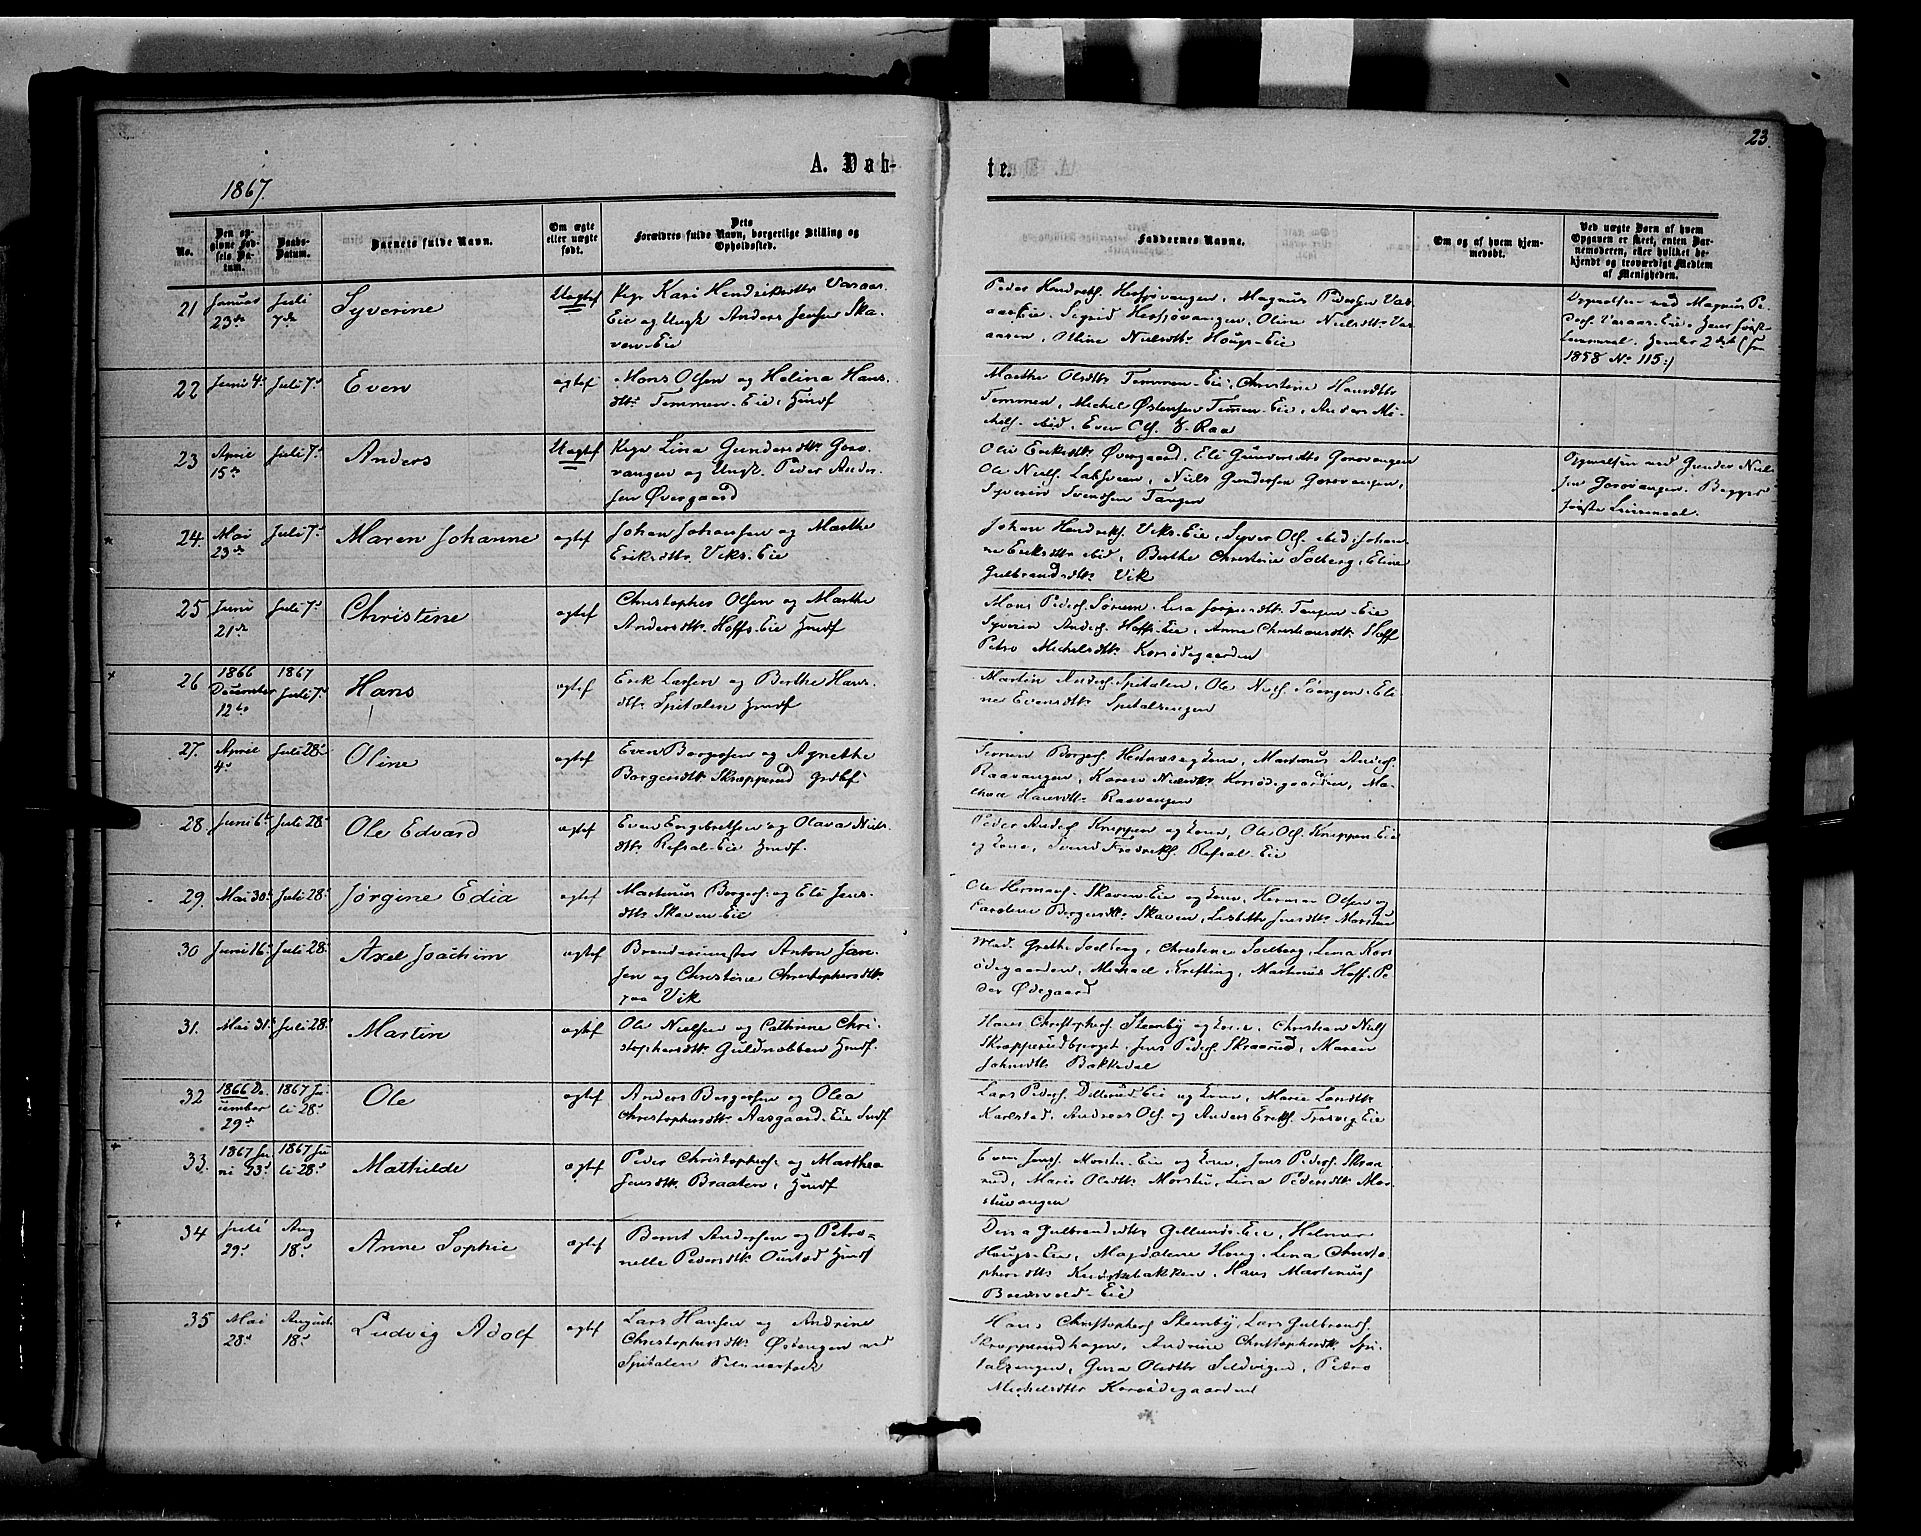 23.
A. Døb-
te.
1867.
No.
Den op-
givne Fød-
sels Da-
tum.
Daabs-
Datum.
Barnets fulde Navn.
Om ægte
eller uægte
født.
Dets
Forældres fulde Navn, borgerlige Stilling og
Opholdssted.
Faddernes Navne.
Om og af hvem hjem-
medøbt.
Ved uægte Børn af hvem
Opgaven er skeet, enten Bar-
nemoderen, eller hvilket be-
kjendt og troværdigt Medlem
af Menigheden.
21 Januar Juli Syverine Uægtef Pige Kari Hendriksdtr Varaas-
23de 7de Eie og Ungk. Anders Jensen Ska-
ven-Eie
Peder Hendriks. Hersjøvangen, Magnus Pedersen Var-
aas Eie, Sigrid Hersjøvangen, Oline Nielsdtr Var-
aasen, Oline Nielsdtr Hougs-Eie
Opgivelsen ved Magnus Pe-
ders. Varaas-Eie. Hans første
Leiermaal. Hendes 2det (fra
1858 No 115:)
22 Juni 4. Juli 7d Even ægtef Mons Olsen og Helina Hans-
dtr Temmen-Eie, Husf
Marthe Olsdtr Temmen-Eie, Christine Hansdtr
Temmen, Michel Østensen Temmen-Eie, Anders Mi-
chels. ibid, Even Ols. Raa
23 April Juli 7d Anders Uægtef Pige Lina Gundersdtr Goro-
15de vangen og Ungk. Peder Ander-
sen Øvergaard
Olia Eriksdtr Øvergaard, Eli Gundersdtr Gorovangen
Ole Niels. Labsveen, Niels Gundersen Gorovangen,
Syverin Svendsen Tangen
Opgivelsen ved Gunder Niel-
sen Gorovangen. Begges
første Leiermaal.
24. Mai Juli 7d Maren Johanne ægtef Johan Johansen og Marthe
23de Eriksdtr Viks-Eie
Johan Hendriks. Viks-Eie, Syver Ols. ibid, Johan-
ne Eriksdtr ibid, Berthe Christine Solberg, Eline
Gulbrandsdtr Vik
25 Juni Juli 7d Christine ægtef Christopher Olsen og Marthe
21de Andersdtr Hoffs-Eie Husf
Mons Peders. Sørum, Lisa Tangen-Eie
Syverin Anders. Hoffs-Eie, Anne Christiansdtr Hoff
Petra Michelsdtr Korsødegaarden
26 1866 1867 Hans ægtef Erik Larsen og Berthe Hans-
December Juli 7d dtr Spitalen Husf
12te
Martin Anders. Spitalen, Ole Niels. Søengen, Eli-
ne Evensdtr Spitalsengen
27. April Juli 28d Oline ægtef Even Borgersen og Agnethe
4d Borgersdtr Skræpperud
Simen Borgers. Hednesegden, Martinus Anders.
Raavangen, Karen Nielsdtr Korsødegaarden, Ma-
thea Hansdtr Raavangen
28. Juni 6te Juli 28d Ole Edvard ægtef Even Engebretsen og Olava Niels-
dtr Refsal-Eie Husf.
Peder Anders. Kneppen og Kone, Ole Ols. Kneppen-Eie
og Kone, Svend Fredriks. Refsal-Eie
29. Mai 30te Juli 28d Jørgine Edia ægtef Martinus Borgers. og Eli Jens-
dtr Skaven-Eie
Ole Hermans. Skaven-Eie og Kone, Herman Olsen og
Caroline Borgersdtr Skaven, Lisbeth Jensdtr Morstu
30 Juni 16. Juli 28d Axel Joachim ægtef Brændemester Anton Jan-
sen og Christine Christophersdtr
paa Vik
Mad. Grethe Soelberg, Christine Soelberg, Lina Kors-
ødegaarden, Michael Krefting, Martinus Hoff, Pe-
der Ødegaard
31. Mai 31te Juli 28d Martin ægtef Ole Nielsen og Cathrine Chri-
stophersdtr Guldnæbben Husf.
Hans Christophers. Stenby og Kone, Christian Niels
Skræpperudberget, Jens Peders. Skraarud, Maren
Johnsdtr Bakkedal
32 1866 De- 1867 Ju- Ole ægtef Anders Borgersen og Olea
cember li 28d Christophersdtr Aasgaard-Eie Indf
29de
Lars Peders. Dellerud-Eie og Kone, Marie Larsdtr
Karlstad, Andreas Ols. og Anders Eriks. Trosvig-Eie
33. 1867 Ju- 1867 Ju- Mathilde ægtef Peder Christophers. og Marthea
ni 23d li 28d Jensdtr Braaten, Husf
Even Jens. Morstu-Eie og Kone, Jens Peders. Skraa-
rud, Marie Olsdtr Morstu, Lina Pedersdtr Mor-
stuvangen
34 Juli Aug Anne Sophie ægtef Bernt Andersen og Petro-
29d 18d nelle Pedersdtr Oustad Husf
Dina Gulbrandsdtr Gillunds-Eie, Helmer
Hougs-Eie, Magdalene Houg, Lina Christo-
phersdtr Knidskebakken, Hans Martinus
Eie
35 Mai August Ludvig Adolf ægtef Lars Hansen og Andrine
28d 18d Christophersdtr Østengen ved
Spitalen
Hans Christophers. Stenby, Lars Gulbrands.
Skræpperudhagen, Andrine Christophersdtr Spi-
talsengen, Gina Olsdtr Sildvigen, Petra
Michelsdtr Korsødegaarden